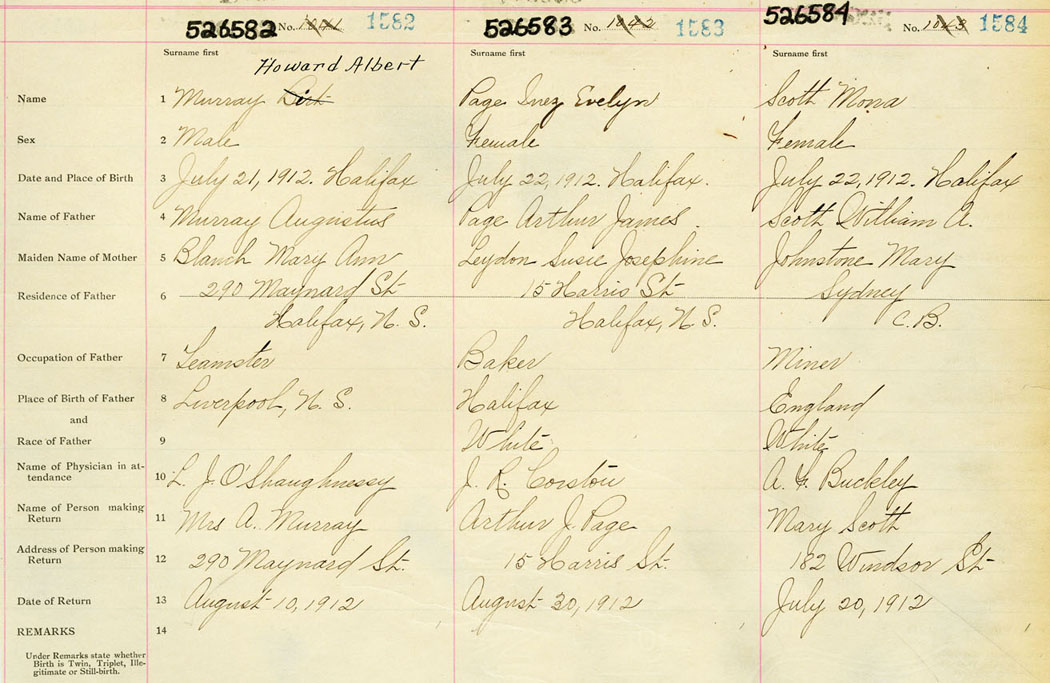 526582 No. 1041 1582 526583 No. 1042 1583 526584 No. 1043 1584
Surname first Surname first Surname first
Howard Albert
Name 1 Murray Page Inez Evelyn Scott Mona
Sex 2 Male Female Female
Date and Place of Birth 3 July 21, 1912. Halifax July 22, 1912. Halifax. July 22, 1912. Halifax
Name of Father 4 Murray Augustus Page Arthur James Scott William A.
Maiden Name of Mother 5 Blanch Mary Ann Leydon Susie Josephine Johnstone Mary
Residence of Father 6 290 Maynard St 15 Harris St Sydney
Halifax, N. S. Halifax, N. S. C. B.
Occupation of Father 7 Teamster Baker Miner
Place of Birth of Father 8 Liverpool, N. S. Halifax England
and
Race of Father 9 White White
Name of Physician in at-
tendance 10 L. J. O'Shaughnessy J. R. Corston A. F. Buckley
Name of Person making
Return 11 Mrs A. Murray Arthur J. Page Mary Scott
Address of Person making
Return 12 290 Maynard St. 15 Harris St. 182 Windsor St
Date of Return 13 August 10, 1912 August 30, 1912 July 20, 1912
REMARKS 14
Under Remarks state whether
Birth is Twin, Triplet, Ille-
gitimate or Still-birth.